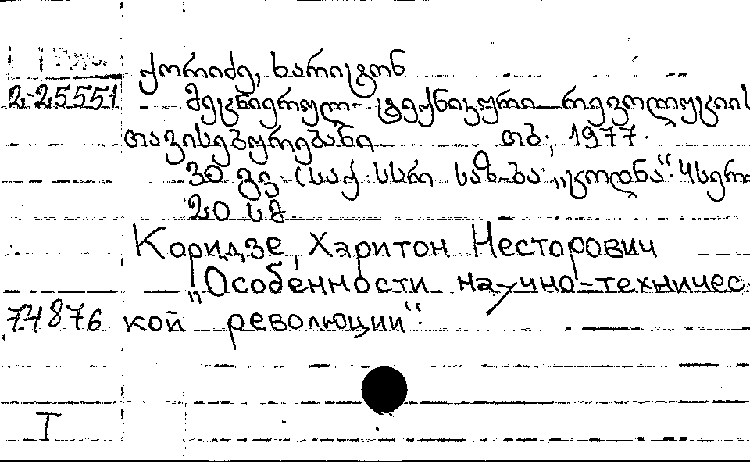 ქორიძე, ხარიტონ
2-25551 მეცნიერულ-ტექნიკური რევოლუციის
თავისებურებანი თბ., 1977.
30 გვ. (საქ. სსრ საზ-ბა „ცოდნა“.
20 სმ.
Коридзе, Харитон Несторович
„Особенности научно-техничес
74876 кой революции“.
I